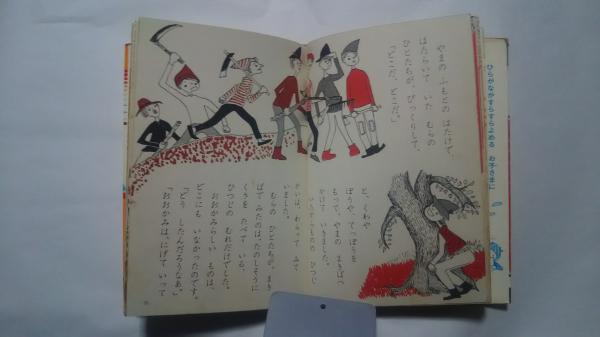 やまの ふもとの はたけで、
はたらいて いた むらの
ひとたちが、びっくりして、
「どこだ、どこだ。」
と、くわや
ぼうや、てっぽうを
もって、やまの まきばへ
かけて いきました。
いたずらものの ひつじ
かいは、わらって みて
いました。
むらの ひとたちが、まき
ばで みたのは、たのしそうに
くさを たべて いる、
ひつじの むれだけでした。
おおかみらしい ものは、
どこにも いなかったのです。
「どう したんだろうなあ。」
「おおかみは、にげて いって
ひらがながすらすらよめる お子さまに